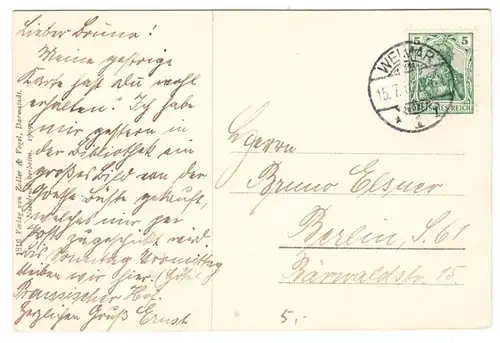 Lieber Bruno!
Meine gestrige
Karte hast du wohl
erhalten. Ich habe
mir gestern in
der Bibliothek ein
großes Bild von der
Goethe Büste gekauft,
welches mir per
Post zugeschickt wird.
Bis Sonntag Vormittag
bleiben wir hier. (Hôtel
Preussischer Hof.
Herzlichen Gruß Ernst
1816 Verlag von Zedler & Vogel, Darmstadt.
5 5
WEIMAR
15.7.
DEUTSCHES REICH
Herrn
Bruno Elsner
Berlin, S. 61
Bärwaldstr. 15.
5,-